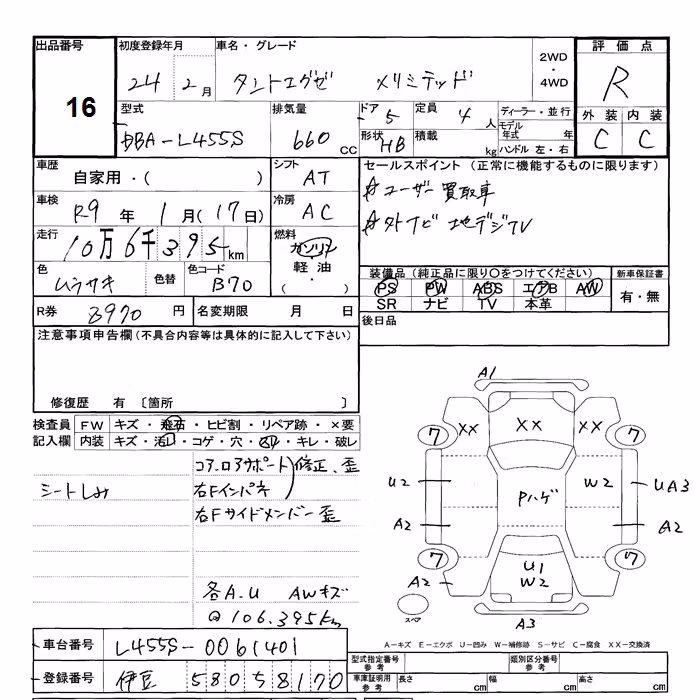 出品番号 初度登録年月 車名・グレード 2WD・4WD 評価点
16 24 2月 タントエグゼ メリミテッド R
型式 排気量 ドア 5 定員 4人 ディーラー・並行 外装 内装
DBA-L455S 660CC 形状 HB 積載 kg モデル年式 年 C C
ハンドル 左・右
車歴 シフト セールスポイント (正常に機能するものに限ります)
自家用・( ) AT ユーザー買取車
車検 R9年 1月(17日) 冷房 AC 外ナビ 地デジTV
走行 10万6千395km 燃料 ガソリン 軽油・( )
色 ムラサキ 色替 色コード B70
装備品 (純正品に限り○をつけてください) 新車保証書
PS PW ABS エアB AW 有・無
SR ナビ TV 本革
R券 8970円 名変期限 月 日 後日品
注意事項申告欄 (不具合内容等は具体的に記入して下さい)
修復歴 有 〔箇所 〕
検査員記入欄 FW キズ・飛石・ヒビ割・リペア跡・×要
内装 キズ・汚レ・コゲ・穴・スレ・キレ・破レ
コアロアサポート 修正、歪
シートしみ 右Fインパネ
右Fサイドメンバー歪
各A.U AWキズ
@106.395km
A1
7 XX XX XX 7
U2 Pハゲ W2 UA3
A2 A2
7 7
A2 U1 W2 A2
スペア A3
A-キズ E-エクボ U-凹み W-補修跡 S-サビ C-腐食 XX-交換済
車台番号 L455S-0061401
型式指定番号 参考 類別区分番号 参考
登録番号 伊豆 580 58170
車庫証明用 参考 長さ cm 幅 cm 高さ cm